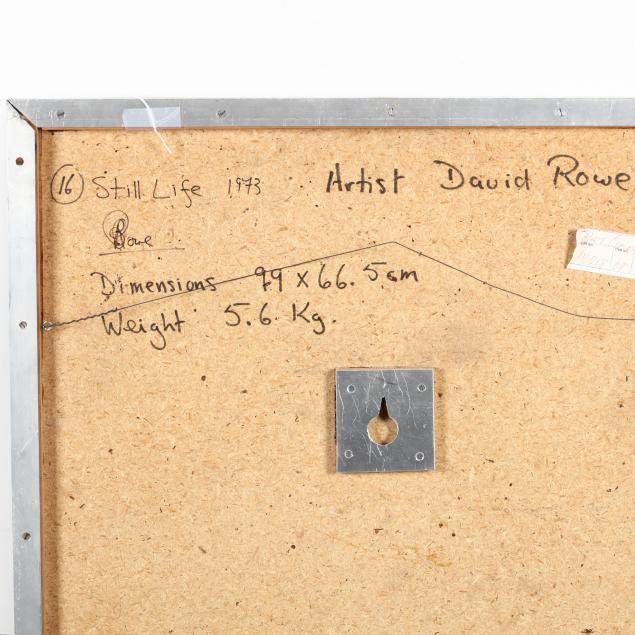 16 Still Life 1973 Artist David Rowe
Rowe
Dimensions 99 x 66.5cm
Weight 5.6 Kg.